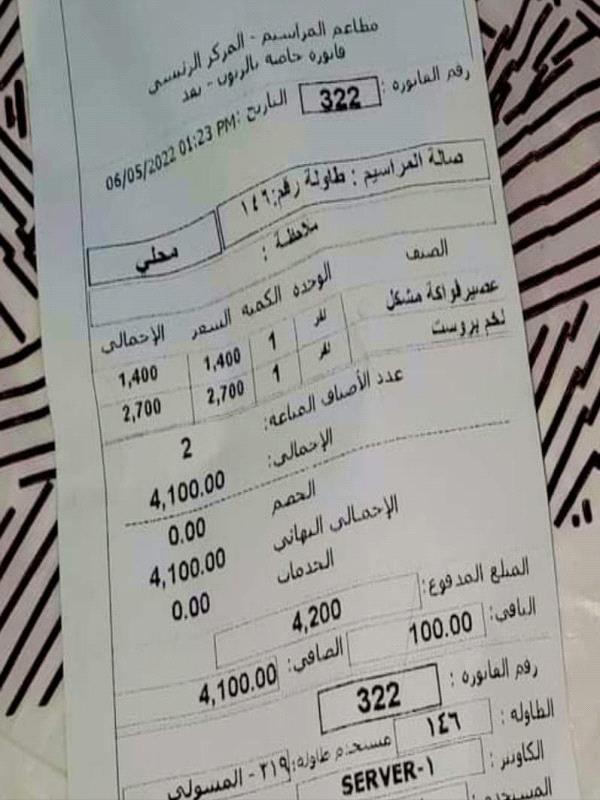 مطاعم المراسيم - المركز الرئيسي
فاتورة خاصة بالزبون - نقد
رقم الفاتورة : 322 التاريخ: 06/05/2022 01:23 PM
صالة المراسيم : طاولة رقم:١٤٦ محلي
ملاحظة :
الصنف الوحده الكميه السعر الإجمالي
عصير فواكة مشكل نفر 1 1,400 1,400
لخم بروست نفر 1 2,700 2,700
عدد الأصناف المباعه: 2
الإجمالي: 4,100.00
الخصم 0.00
الإجمالي النهائي 4,100.00
الخدمات 0.00
المبلغ المدفوع: 4,200
الباقي: 100.00 الصافي: 4,100.00
رقم الفاتورة : 322
الطاولة: ١٤٦ مستخدم طاولة: ٢١٩ - المسولي
الكاونتر: SERVER-١
المستخدم: